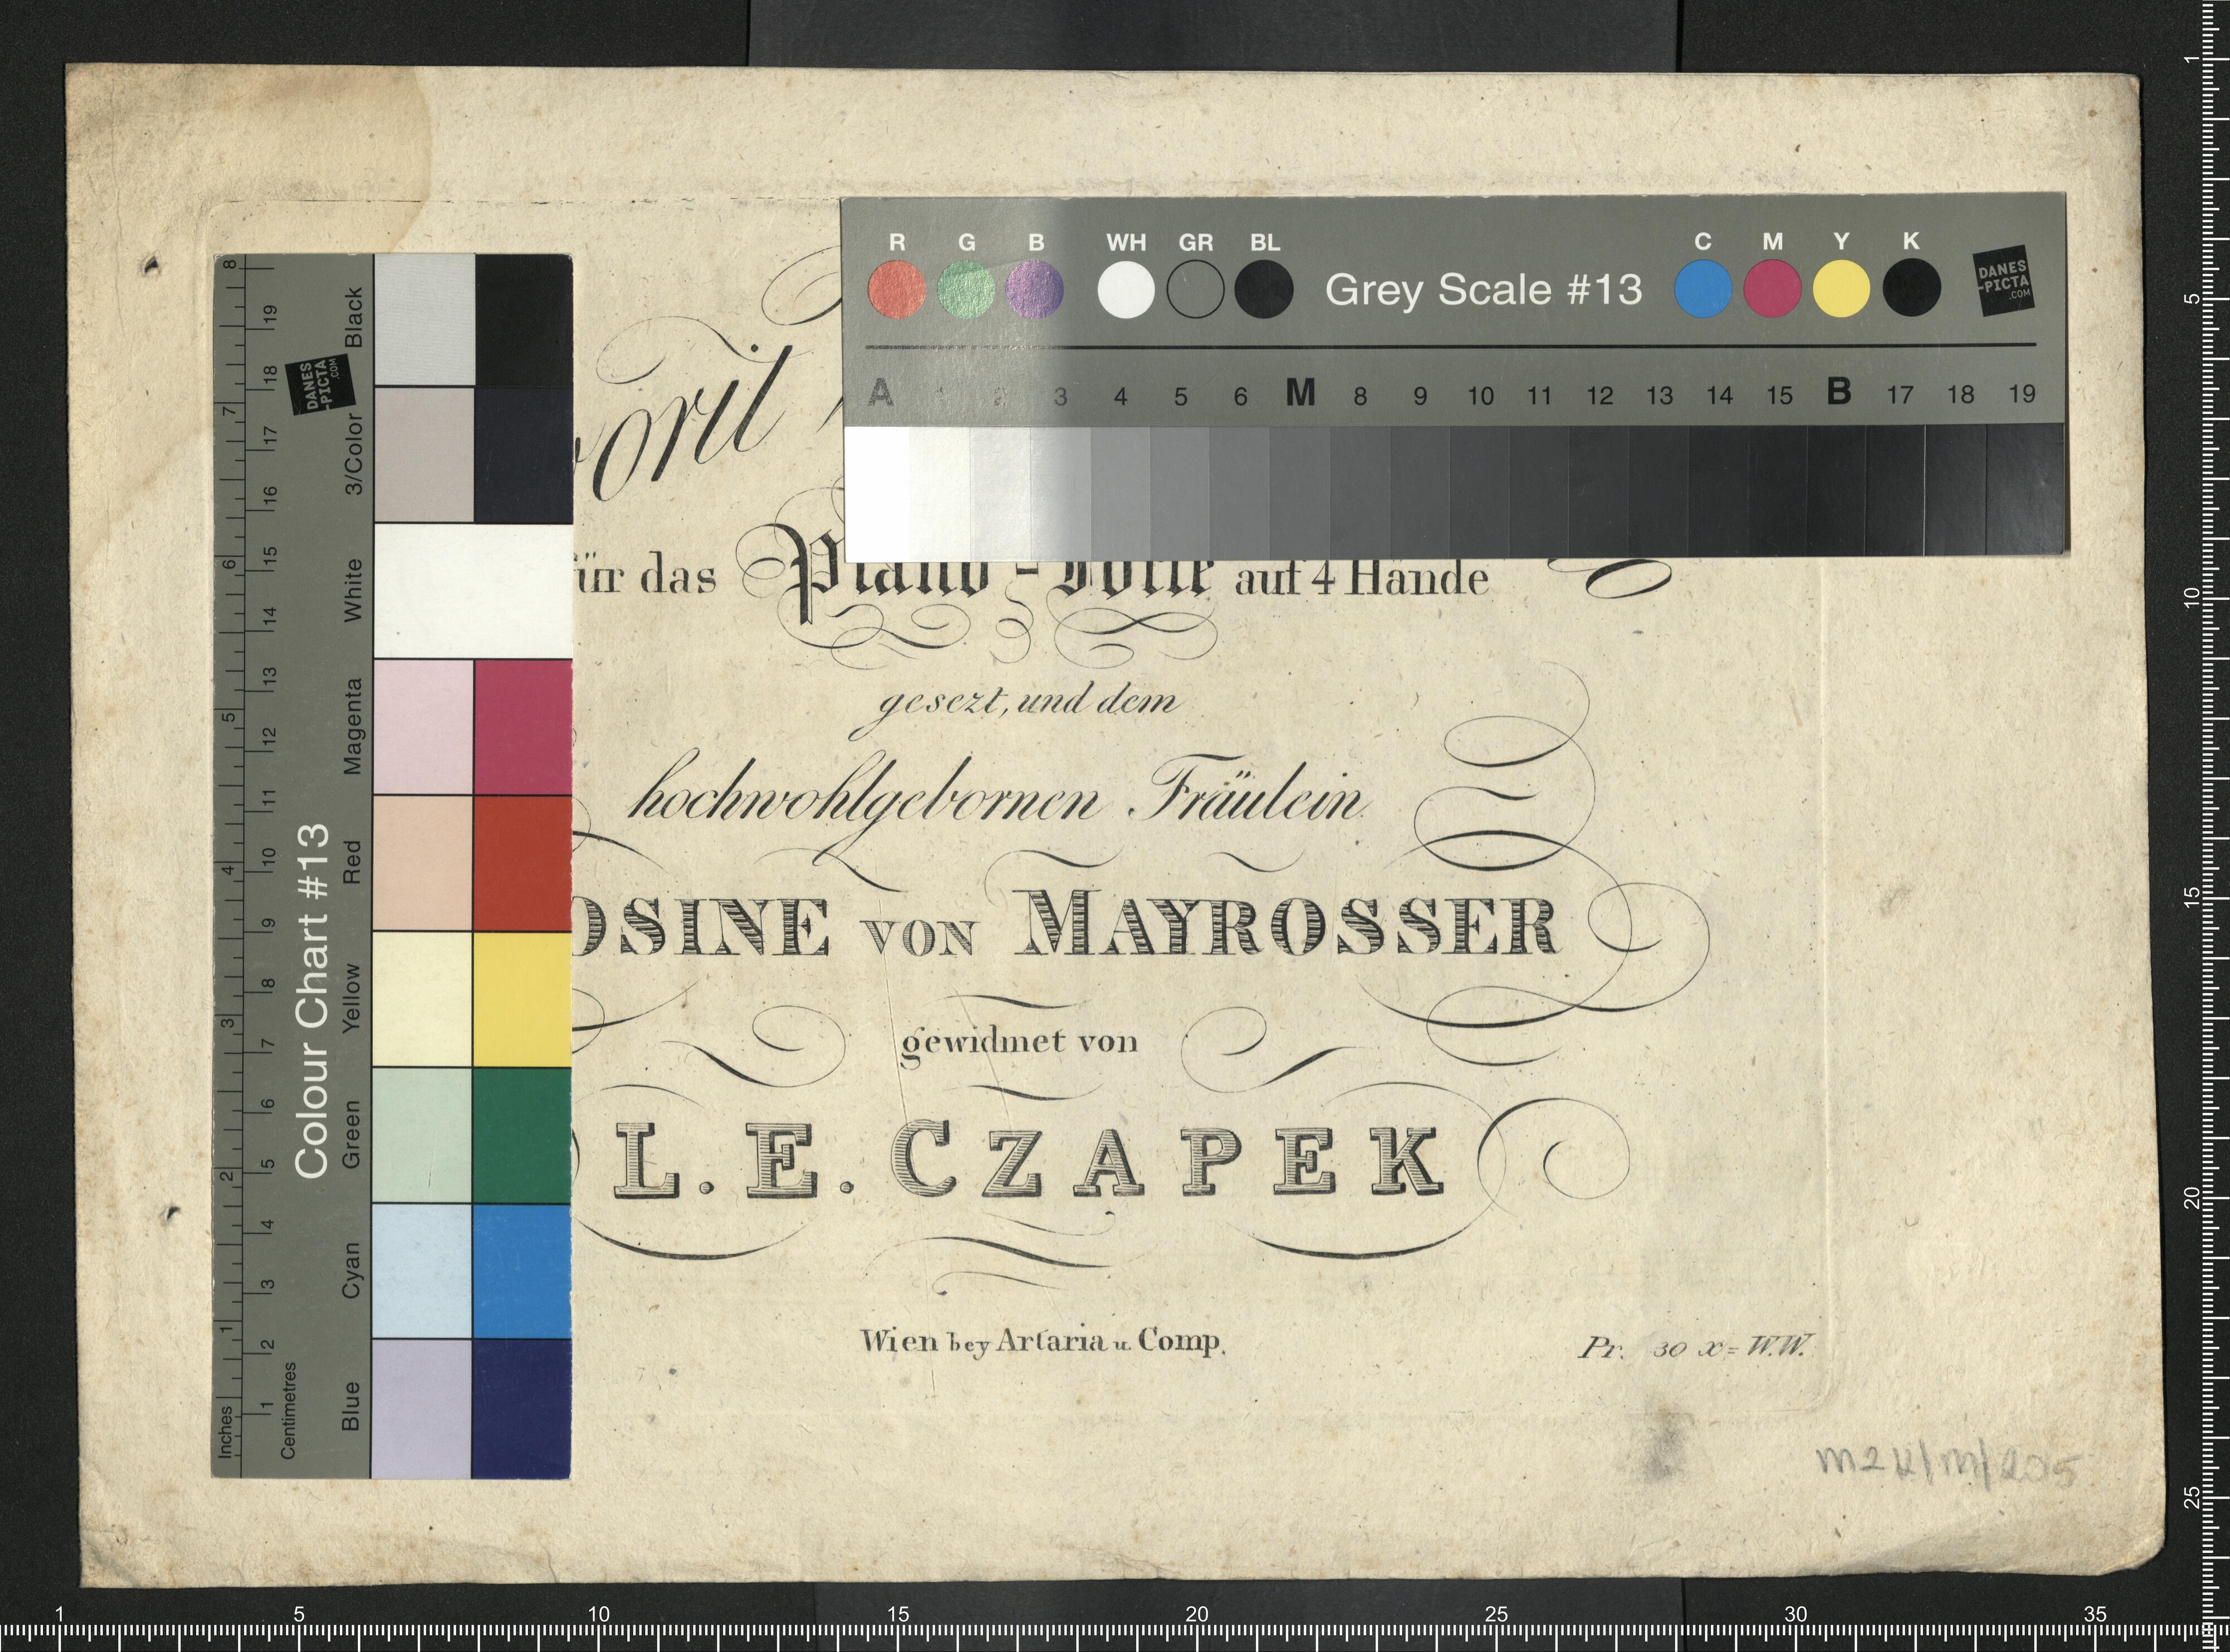 R G B WH GR BL Grey Scale #13 C M Y K DANES-PICTA.COM
A 1 2 3 4 5 6 M 8 9 10 11 12 13 14 15 B 17 18 19
Colour Chart #13
DANES-PICTA.COM
Black
3/Color
White
Magenta
Red
Yellow
Green
Cyan
Blue
Inches 1 2 3 4 5 6 7 8
Centimetres 1 2 3 4 5 6 7 8 9 10 11 12 13 14 15 16 17 18 19
für das Piano-Forte auf 4 Hände
gesezt, und dem
hochwohlgebornen Fräulein
OSINE VON MAYROSSER
gewidmet von
L. E. CZAPEK
Wien bey Artaria u. Comp.
Pr. 30 x = W.W.
1 5 10 15 20 25 30 35
1 5 10 15 20 25